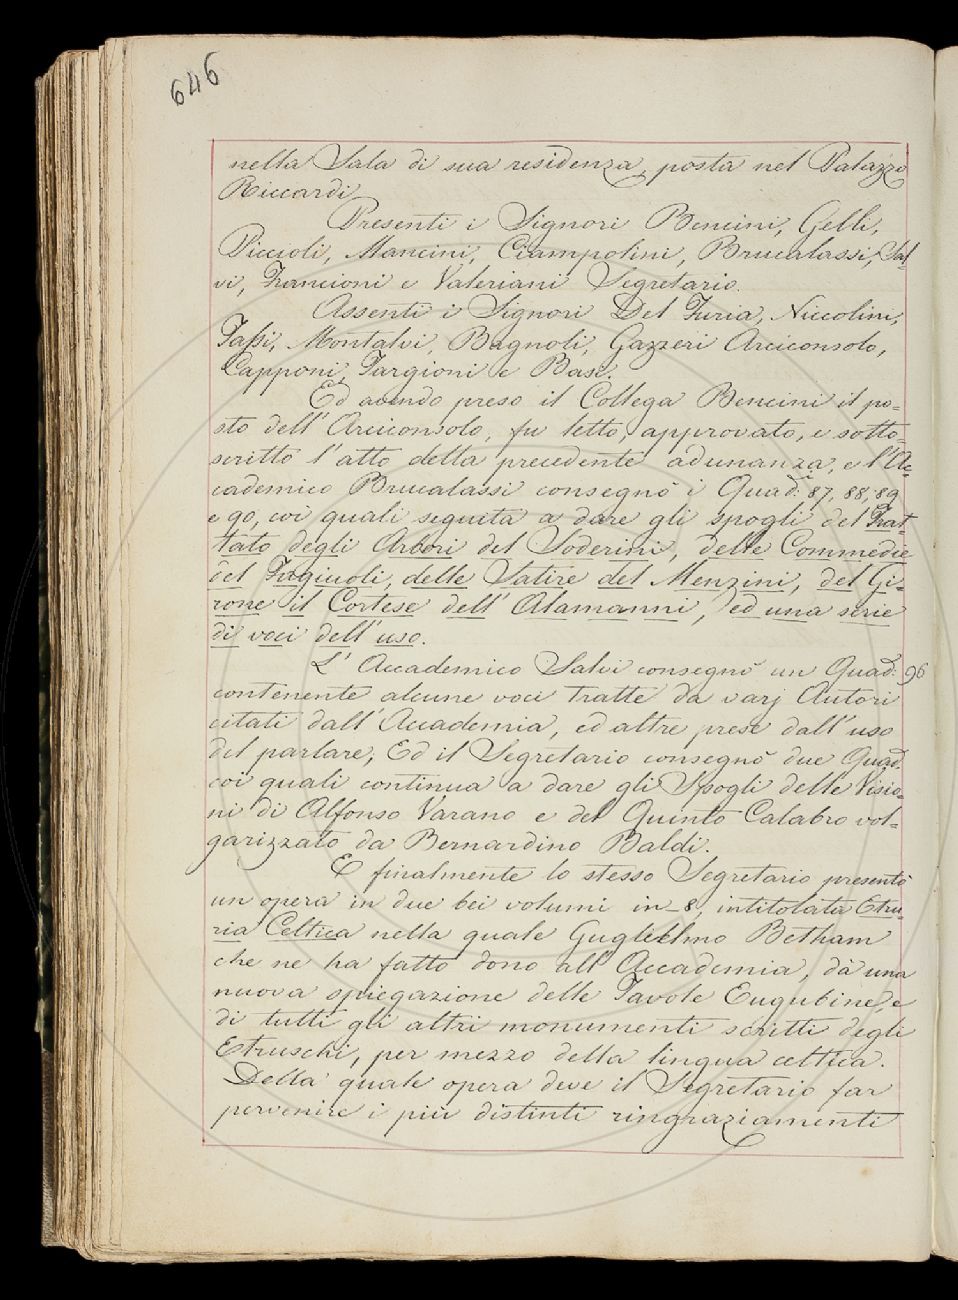 646
nella Sala di sua residenza posta nel Palazzo
Riccardi
Presenti i Signori Bencini, Gelli,
Piccioli, Mancini, Ciampolini, Brucalassi, Sal-
vi, Francioni e Valeriani Segretario.
Assenti i Signori Del Furia, Niccolini,
Tassi, Montalvi, Bagnoli, Gazzeri Arciconsolo,
Capponi, Targioni e Basi.
Ed avendo preso il Collega Bencini il po=
sto dell'Arciconsolo, fu letto, approvato, e sotto=
scritto l'atto della precedente adunanza, e l'Ac-
cademico Brucalassi consegnò i Quad.i 87, 88, 89
e 90, coi quali seguita a dare gli spogli del Trat-
tato degli Arbori del Soderini, delle Commedie
del Fagiuoli, delle Satire del Menzini, del Gi-
rone il Cortese dell'Alamanni, ed una serie
di voci dell'uso.
L'Accademico Salvi consegnò un Quad. 96
contenente alcune voci tratte da varj Autori
citati dall'Accademia, ed altre prese dall'uso
del parlare, Ed il Segretario consegnò due Quad.
coi quali continua a dare gli Spogli delle Visio=
ni di Alfonso Varano e del Quinto Calabro vol=
garizzato da Bernardino Baldi.
E finalmente lo stesso Segretario presentò
un opera in due bei volumi in_8, intitolata Etru-
ria Celtica nella quale Guglielmo Betham
che ne ha fatto dono all'Accademia, dà una
nuova spiegazione delle Tavole Eugubine, e
di tutti gli altri monumenti scritti degli
Etruschi, per mezzo della lingua celtica.
Della quale opera deve il Segretario far
pervenire i più distinti ringraziamenti